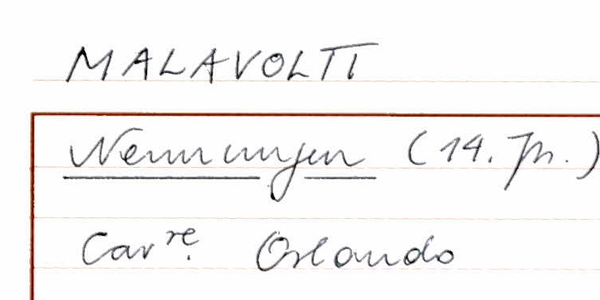 MALAVOLTI
Nennungen (14. Jh.)
Cav.re Orlando